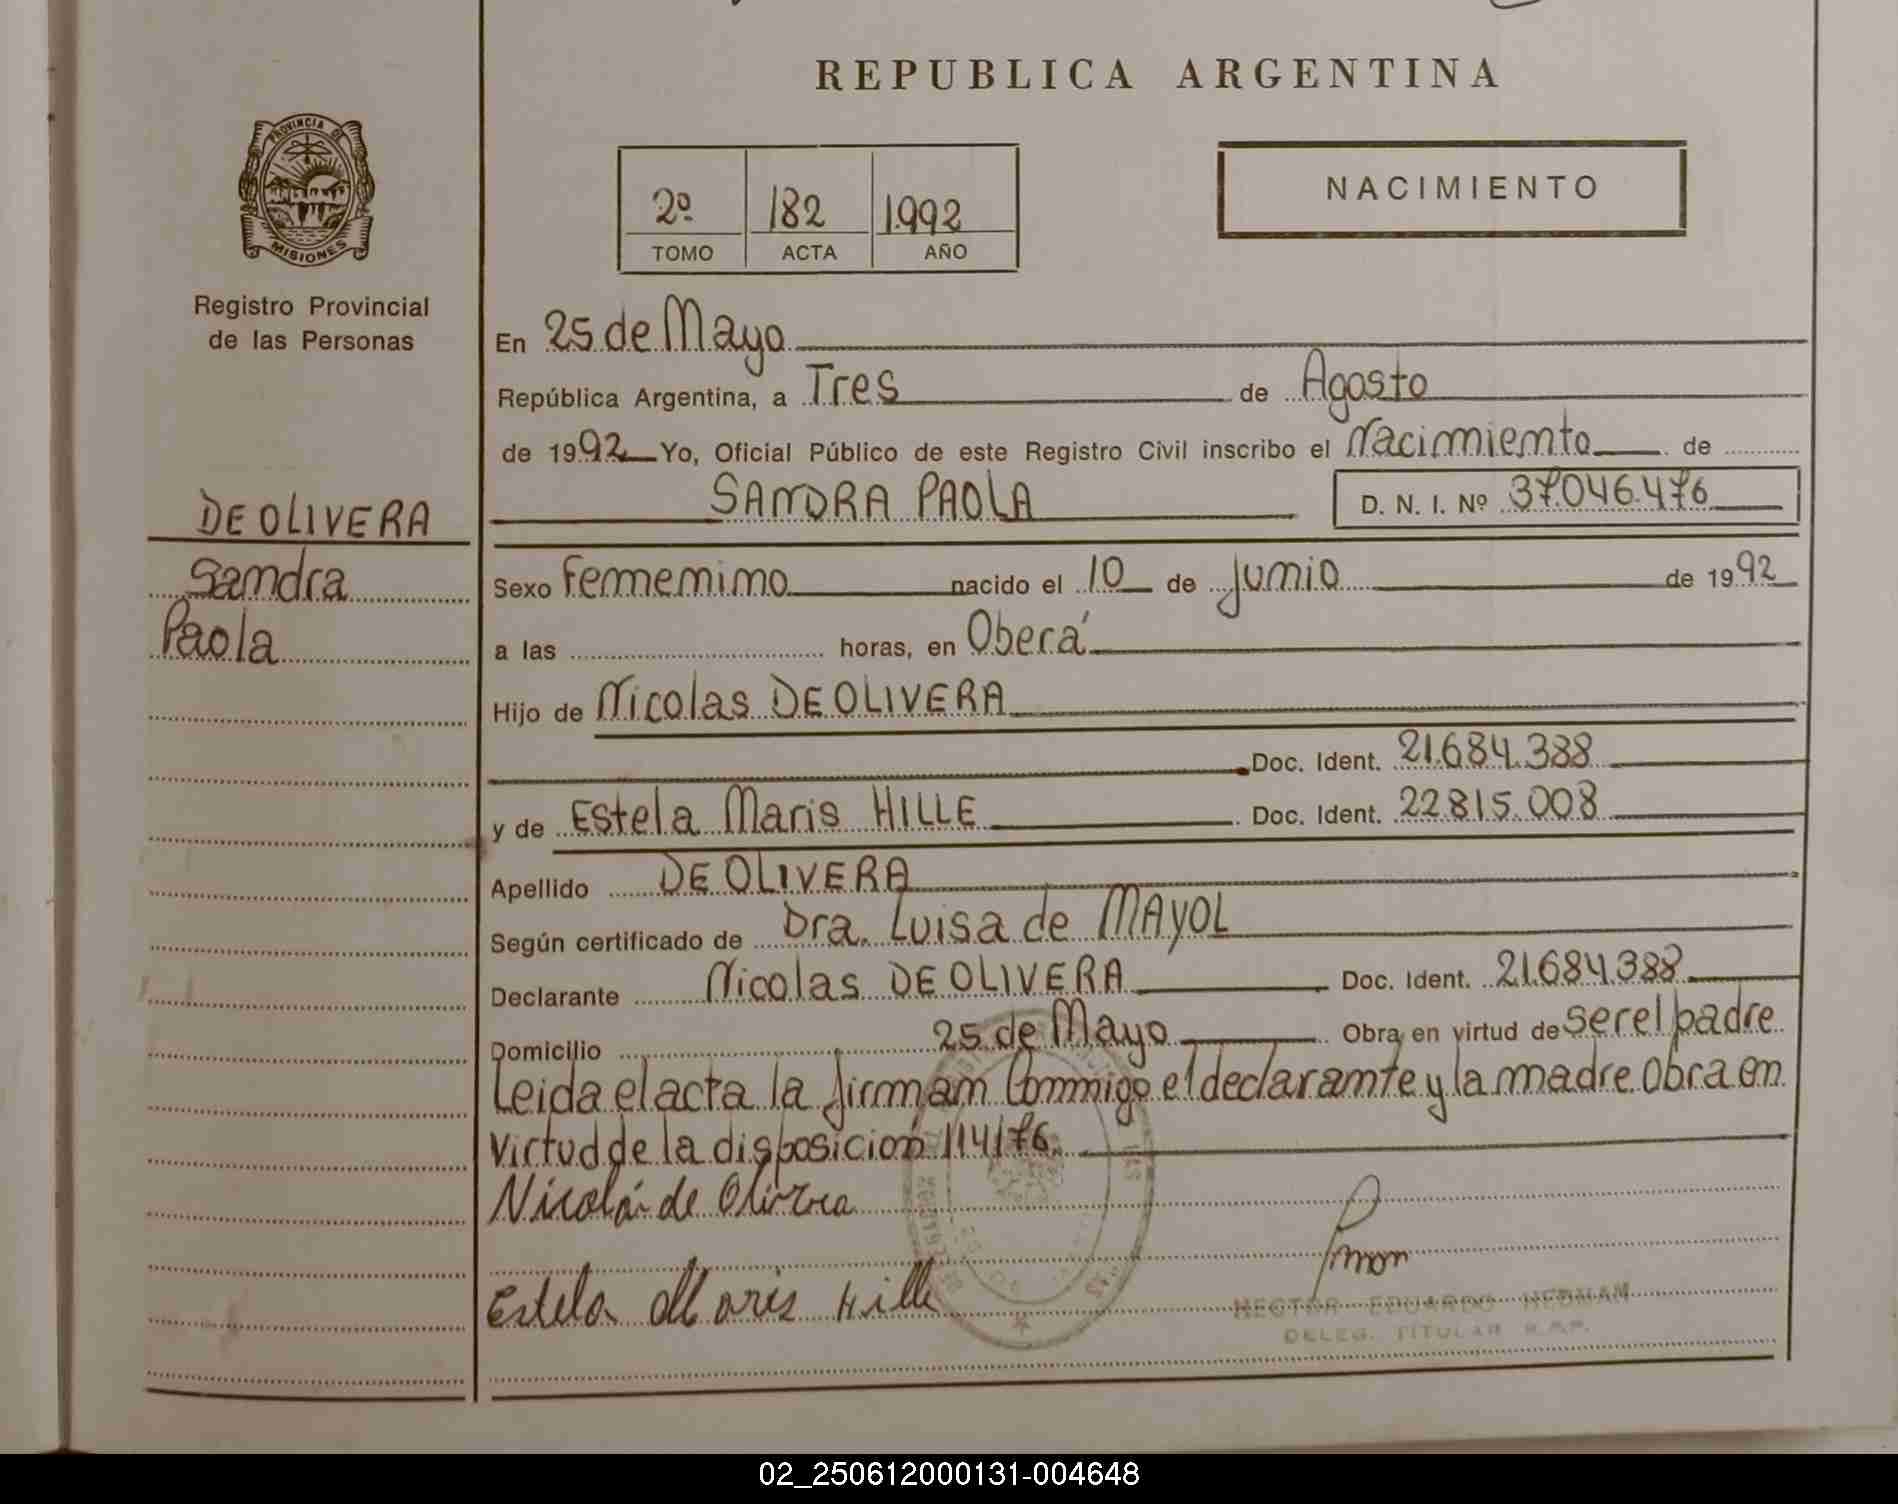 REPUBLICA ARGENTINA
PROVINCIA DE
MISIONES
Registro Provincial
de las Personas
2º 182 1.992
TOMO ACTA AÑO
NACIMIENTO
DE OLIVERA
Sandra
Paola
En 25 de Mayo
República Argentina, a Tres de Agosto
de 1992 Yo, Oficial Público de este Registro Civil inscribo el Nacimiento de
SANDRA PAOLA D. N. I. Nº 37.046.476
Sexo Femenino nacido el 10 de Junio de 1992
a las horas, en Oberá
Hijo de Nicolas DE OLIVERA
Doc. Ident. 21.684.388
y de Estela Maris HILLE Doc. Ident. 22.815.008
Apellido DE OLIVERA
Según certificado de Dra. Luisa de MAYOL
Declarante Nicolas DE OLIVERA Doc. Ident. 21.684.388
Domicilio 25 de Mayo Obra en virtud de ser el padre
Leida el acta la firman Conmigo el declarante y la madre. Obra en
virtud de la disposición 114/76.
Nicolá de Olivera
Estela Maris Hille
HECTOR EDUARDO HEDMAN
DELEG. TITULAR R.P.P.
02_250612000131-004648